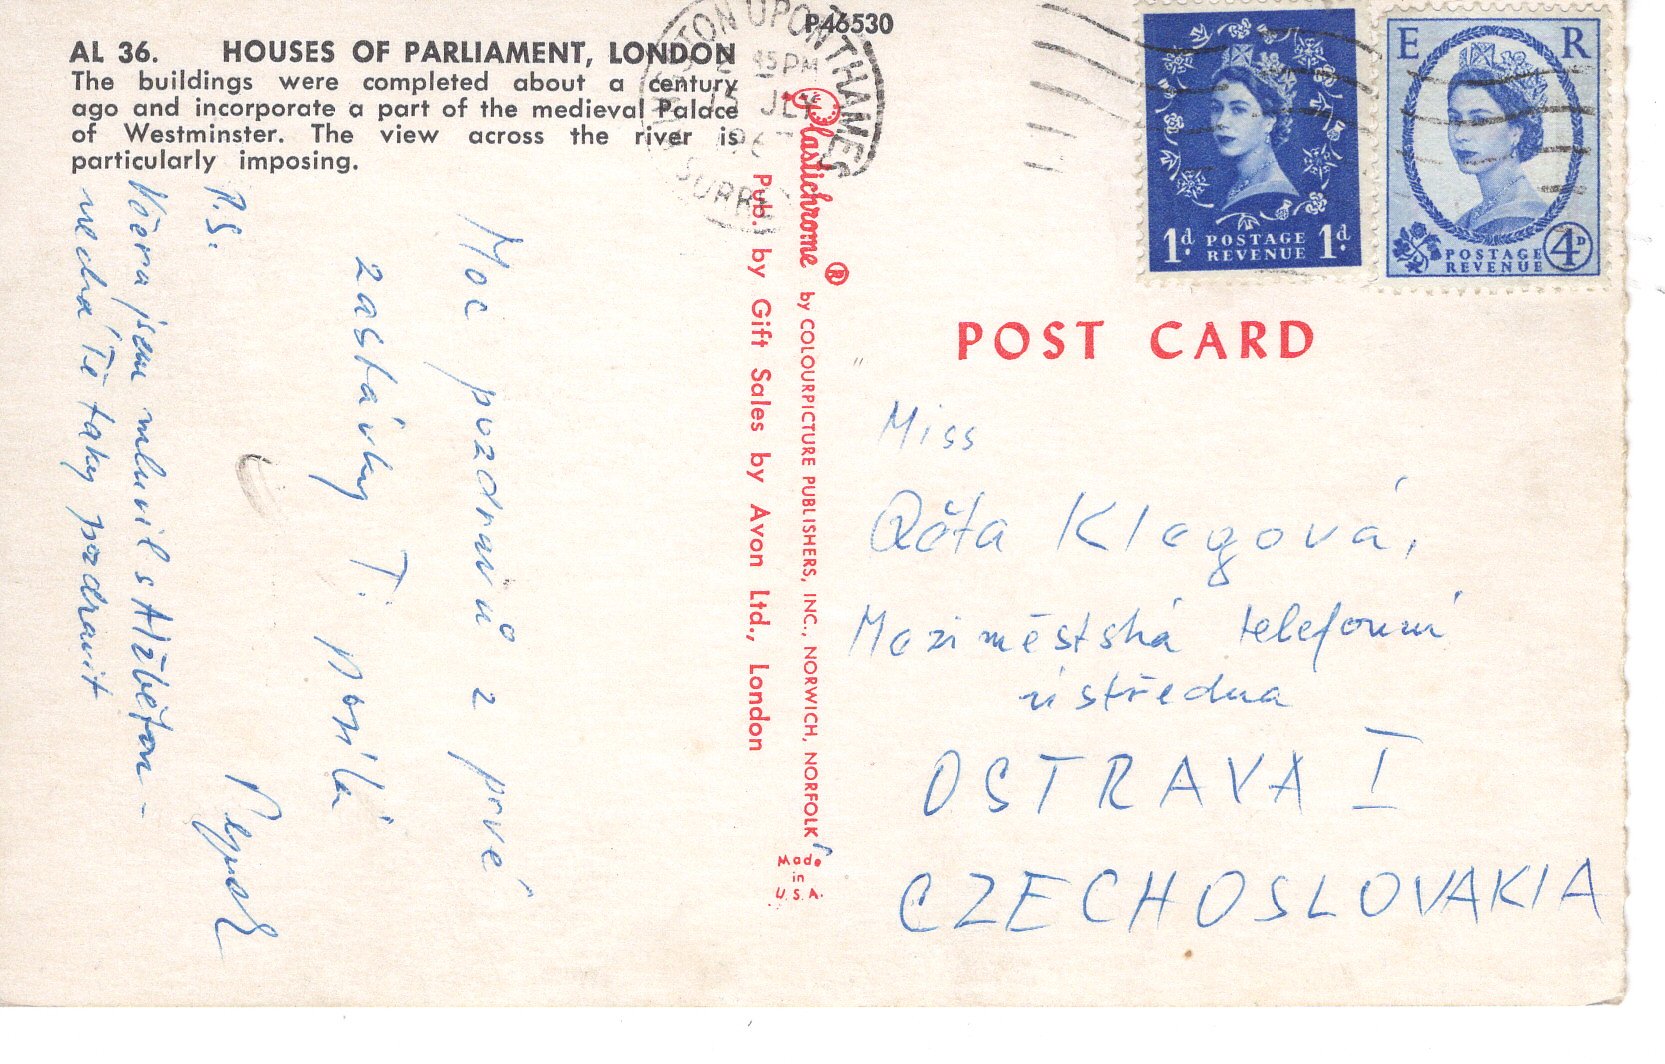 P46530
AL 36. HOUSES OF PARLIAMENT, LONDON
The buildings were completed about a century
ago and incorporate a part of the medieval Palace
of Westminster. The view across the river is
particularly imposing.
UPON THAMES
45PM
JLY
196
SURREY
1d POSTAGE REVENUE 1d
E R
POSTAGE REVENUE 4D
Plastichrome ® by COLOURPICTURE PUBLISHERS, INC., NORWICH, NORFOLK
Pub. by Gift Sales by Avon Ltd., London
Made
in
U.S.A.
POST CARD
Miss
Klegová,
Meziměstská telefonní
ústředna
OSTRAVA I
CZECHOSLOVAKIA
Moc pozdravů z prvé
zastávky T. posílá
Pepek
P.S.
Včera jsem mluvil s Alžbětou -
nechá Tě taky pozdravit